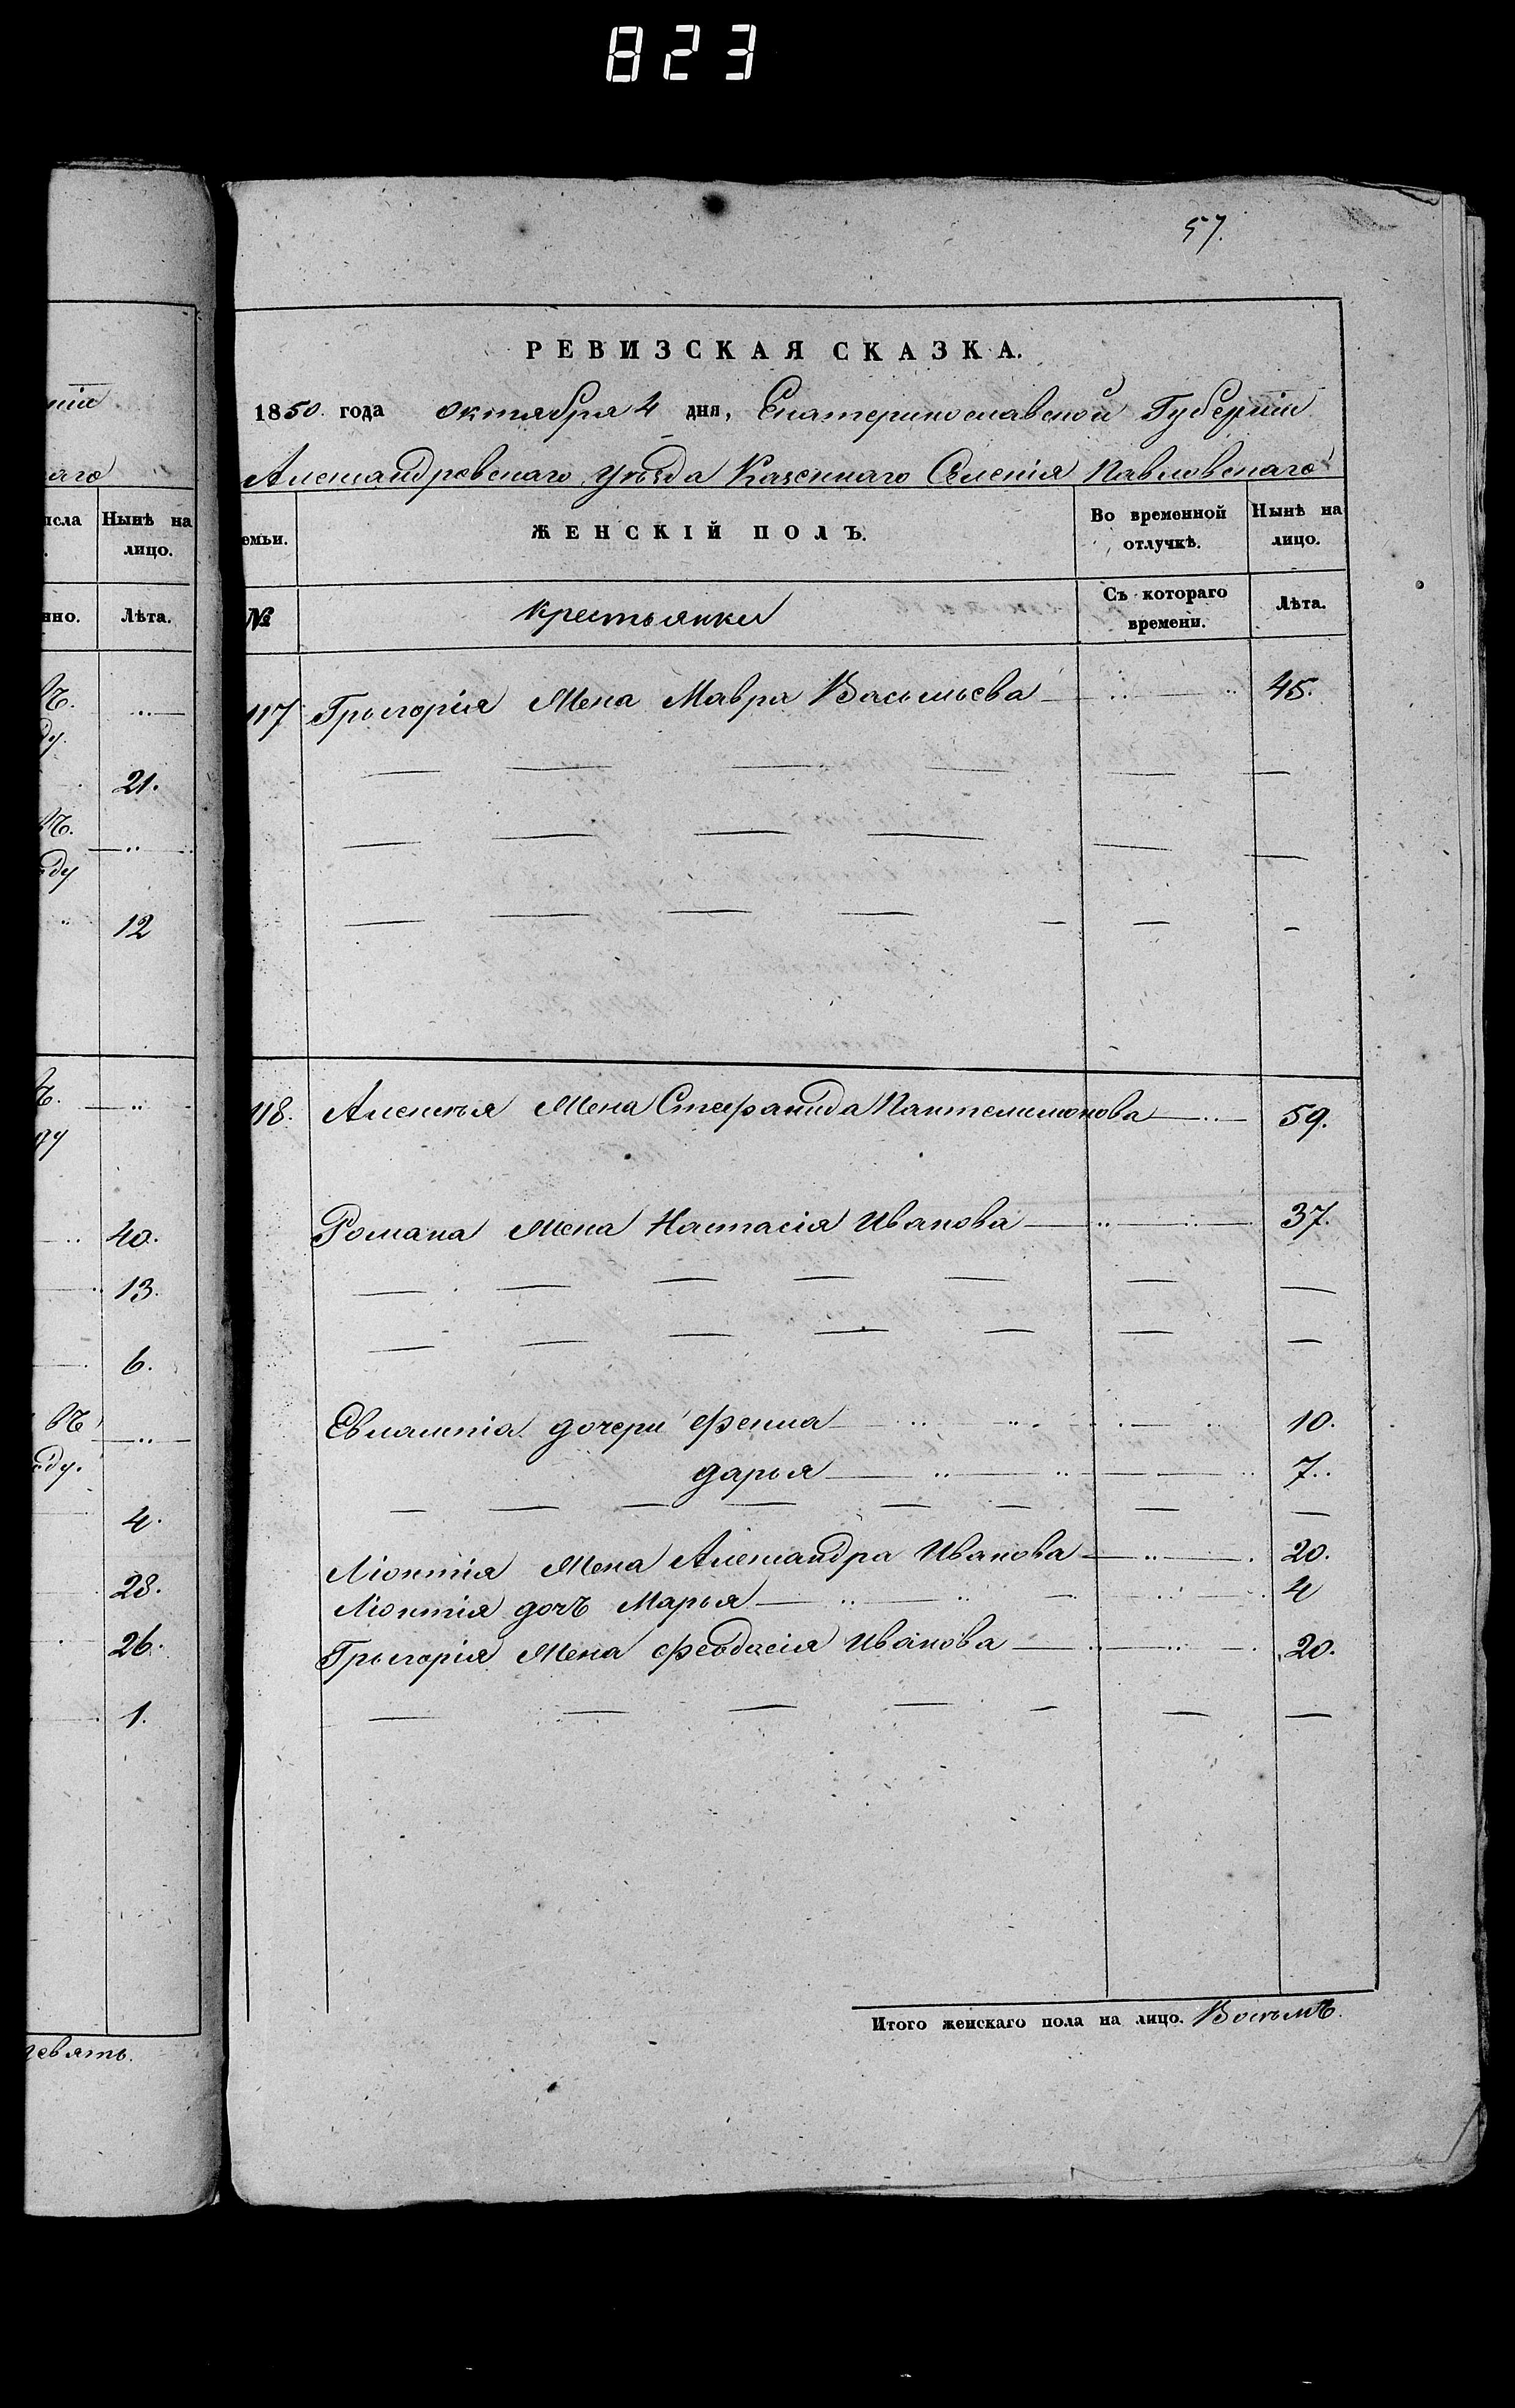 823
57.
РЕВИЗСКАЯ СКАЗКА.
1850 года октября 4 дня, Екатеринославской Губерніи
Александровскаго уѣзда Казеннаго Селенія Павловскаго
емьи. ЖЕНСКІЙ ПОЛЪ. Во временной отлучкѣ. Нынѣ на лицо.
№ крестьянки Съ котораго времени. Лѣта.
117 Григорія Жена Мавра Васильева 45.
118. Алексѣя Жена Стефанида Пантелимонова 59.
Романа Жена Настасія Иванова 37.
Евлампія дочери Фенна 10.
дарья 7.
Ліонтія Жена Александра Иванова 20.
Ліонтія дочъ Марья 4
Григорія Жена Феодосія Иванова 20.
Итого женскаго пола на лицо. Восъмъ.
ніи
аго
исла Нынѣ на лицо.
нно. Лѣта.
ду.
21.
ду
12
40.
13.
6.
въ
ду.
4.
28.
26.
1.
девять.